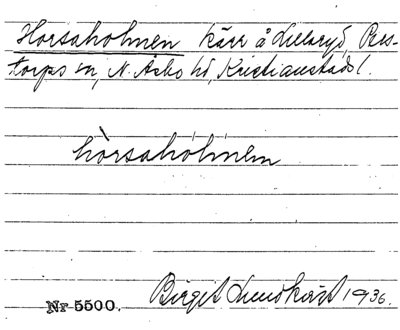 Horsaholmen kärr å Lillaryd, Pers-
torps sn, N. Åsbo hd, Kristianstads l.
hòrsahòlmem
Nr 5500. Birgit Lundkvist 1936.